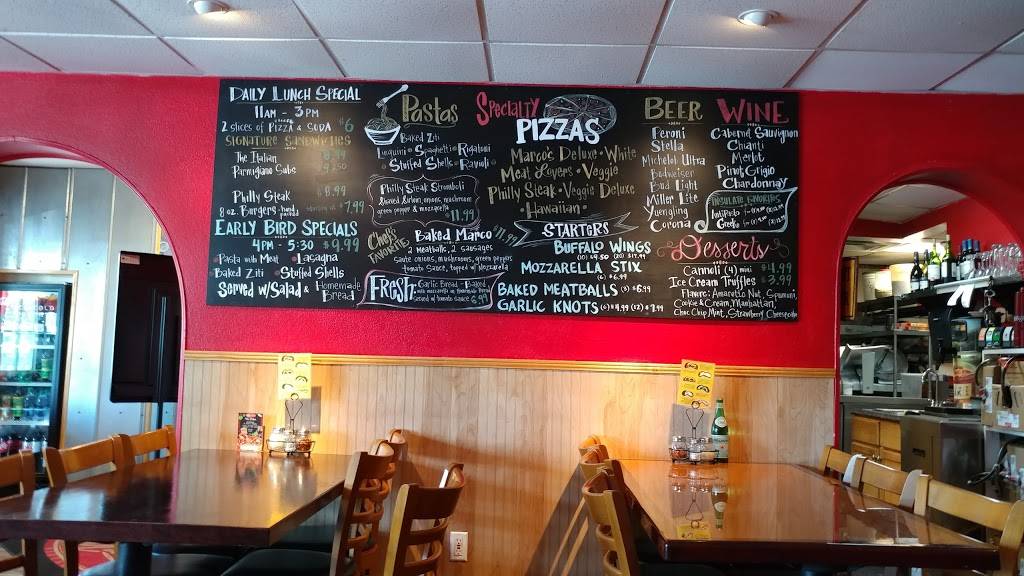 DAILY LUNCH SPECIAL
11AM - 3PM
2 slices of PIZZA & SODA $6
SIGNATURE SANDWICHES
The Italian
Parmigiana Subs
Philly Steak
8 oz. Burgers 7.99
EARLY BIRD SPECIALS
4PM - 5:30 $9.99
Pasta with Meat Lasagna
Baked Ziti Stuffed Shells
Served w/Salad & Homemade Bread
Pastas
Baked Ziti
Linguini Spaghetti Rigatoni
Stuffed Shells Ravioli
Philly Steak Stromboli
Shaved Sirloin, onions, mushroom
green pepper & mozzarella
11.99
Chef's FAVORITE
Baked Marco $11.99
2 meatballs, 2 sausages
saute onions, mushrooms, green peppers
tomato sauce, topped w/Mozzarella
FRESH
Garlic Bread - Baked
served w/ tomato sauce 6.99
SPECIALTY
PIZZAS
Marco's Deluxe White
Meat Lovers Veggie
Philly Steak Veggie Deluxe
Hawaiian
STARTERS
BUFFALO WINGS
(10) $9.50 (20) $17.99
MOZZARELLA STIX
(6) $6.99
BAKED MEATBALLS (3) $6.99
GARLIC KNOTS (6) $4.99 (12) $7.99
BEER
Peroni
Stella
Michelob Ultra
Budweiser
Bud Light
Miller Lite
Yuengling
Corona
WINE
Cabernet Sauvignon
Chianti
Merlot
Pinot Grigio
Chardonnay
INSALATE FAVORITES
Antipasto
Greek
Desserts
Cannoli (4) mini $4.99
Ice Cream Truffles $3.99
Flavors: Amaretto Nut, Spumoni,
Cookie & Cream, Manhattan,
Choc Chip Mint, Strawberry Cheesecake